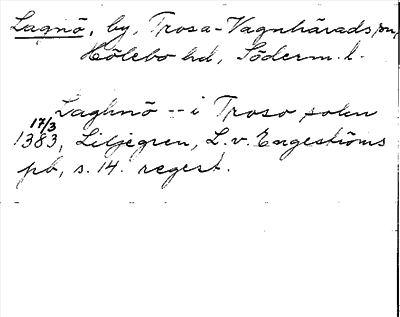 Lagnö, by, Trosa-Vagnhärads sn,
Hölebo hd, Söderm. l.
Laghnö -- i Troso sokn
17/3
1383, Liljegren, L. v. Engeströms
pb, s. 14. regest.